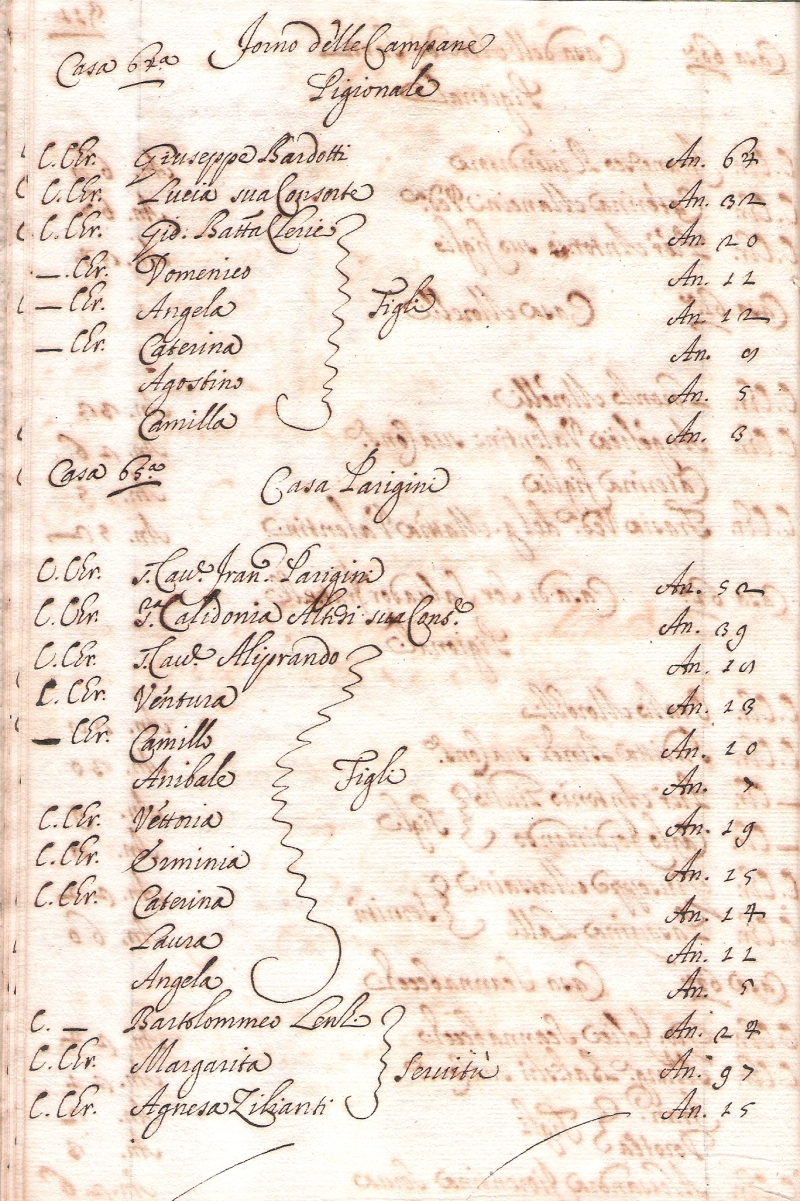 Casa 64ª Forno delle Campane
Pigionale
C. Cr. Giuseppe Bardotti An. 64
C. Cr. Lucia sua Consorte An. 32
C. Cr. Gio. Batta Cleric An. 20
— Cr. Domenico An. 12
— Cr. Angela Figli An. 12
— Cr. Caterina An. 9
Agostino An. 5
Camilla An. 3
Casa 65.ª Casa Parigini
C. Cr. S. Cav.e Fran.o Parigini An. 52
C. Cr. S.ª Calidonia sua Cons.e An. 39
C. Cr. S. Cav.e Aliprando An. 19
C. Cr. Ventura An. 13
— Cr. Camillo An. 10
Anibale Figli An. 7
C. Cr. Vettoria An. 19
C. Cr. Erminia An. 15
C. Cr. Caterina An. 14
Laura An. 12
Angela An. 5
C. — Bartolommeo An. 24
C. Cr. Margarita Servitù An. 97
C. Cr. Agnesa An. 25